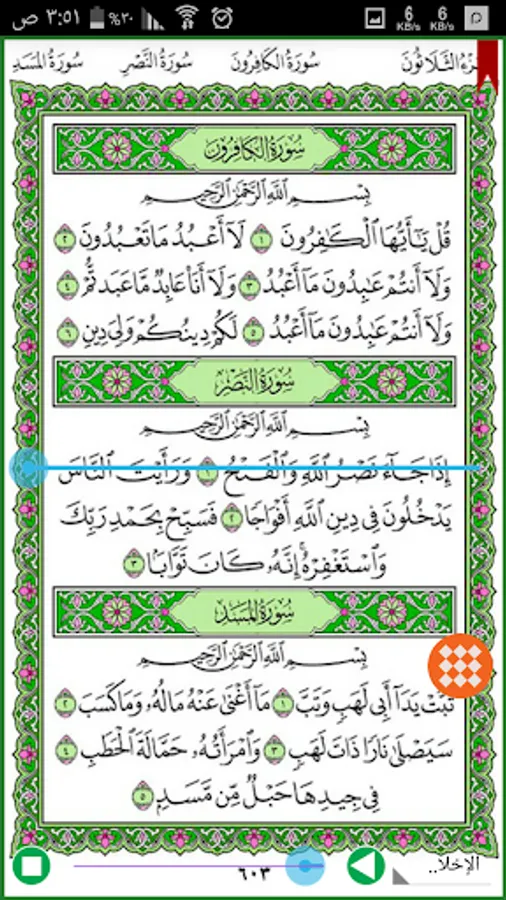 ص ٣:٥١ %٣٠ 6 KB/s 6 KB/s
سُورَةُ المَسَدِ سُورَةُ النَّصْرِ سُورَةُ الكَافِرُونَ الثَّلَاثُونَ
سُورَةُ الكَافِرُون
بِسْمِ اللَّهِ الرَّحْمَٰنِ الرَّحِيمِ
قُلْ يَٰٓأَيُّهَا الْكَٰفِرُونَ ١ لَآ أَعْبُدُ مَا تَعْبُدُونَ ٢
وَلَآ أَنتُمْ عَٰبِدُونَ مَآ أَعْبُدُ ٣ وَلَآ أَنَا۠ عَابِدٌ مَّا عَبَدتُّمْ ٤
وَلَآ أَنتُمْ عَٰبِدُونَ مَآ أَعْبُدُ ٥ لَكُمْ دِينُكُمْ وَلِيَ دِينِ ٦
سُورَةُ النَّصْر
بِسْمِ اللَّهِ الرَّحْمَٰنِ الرَّحِيمِ
إِذَا جَآءَ نَصْرُ اللَّهِ وَالْفَتْحُ ١ وَرَأَيْتَ النَّاسَ
يَدْخُلُونَ فِي دِينِ اللَّهِ أَفْوَاجًا ٢ فَسَبِّحْ بِحَمْدِ رَبِّكَ
وَاسْتَغْفِرْهُ ۚ إِنَّهُۥ كَانَ تَوَّابًۢا ٣
سُورَةُ المَسَد
بِسْمِ اللَّهِ الرَّحْمَٰنِ الرَّحِيمِ
تَبَّتْ يَدَآ أَبِي لَهَبٍ وَتَبَّ ١ مَآ أَغْنَىٰ عَنْهُ مَالُهُۥ وَمَا كَسَبَ ٢
سَيَصْلَىٰ نَارًا ذَاتَ لَهَبٍ ٣ وَامْرَأَتُهُۥ حَمَّالَةَ الْحَطَبِ ٤
فِي جِيدِهَا حَبْلٌ مِّن مَّسَدٍۭ ٥
٦٠٣
الإخلا..